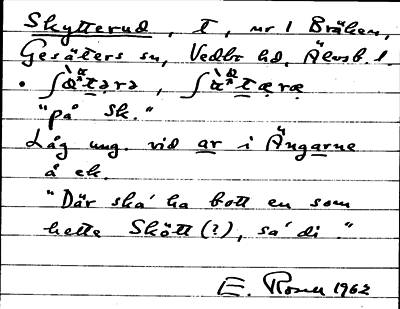 Skytterud, t, nr 1 Bräken,
Gesäters sn, Vedbo hd, Älvsb. l.
"på Sk."
Låg ung. vid ar i Ängarne
å ek.
"Där ska' ha bott en som
hette Skött (?), sa' di."
E. Rosell 1962